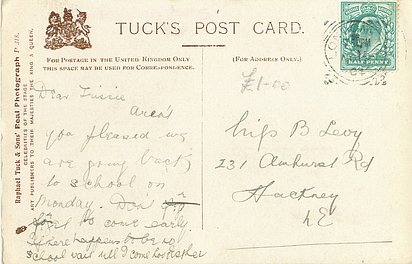 TUCK'S POST CARD.
FOR POSTAGE IN THE UNITED KINGDOM ONLY
THIS SPACE MAY BE USED FOR CORRESPONDENCE.
(FOR ADDRESS ONLY.)
HALF PENNY
£1-00
Raphael Tuck & Sons' Real Photograph P.
CELEBRITIES OF THE STAGE
ART PUBLISHERS TO THEIR MAJESTIES THE KING & QUEEN.
Dear
Aren't
you pleased we
are going back
to school on
Monday. Don
to come early.
If there happens to be no
school wait till I come
Miss B Levy
231 Amhurst Rd
Hackney
NE